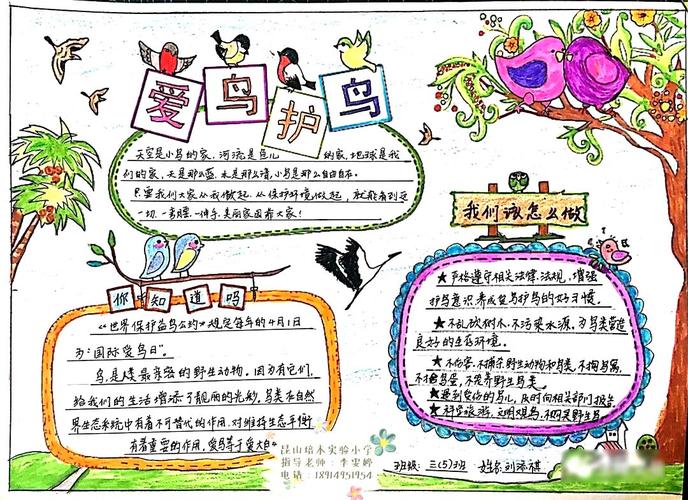 爱鸟护鸟
天空是小鸟的家,河流是鱼儿 的家,地球是我
们的家,天是那么蓝,水是那么清,小鸟是那么自由自在。
只要我们大家从我做起,从保护环境做起,就能看到这
一切
美丽家园靠大家!
我们该怎么做
★严格遵守相关法律、法规,增强
护鸟意识养成爱鸟护鸟的好习惯。
★不乱砍树木,不污染水源,为鸟类营造
良好的生态环境。
★不伤害、不捕杀野生动物和鸟类,不掏鸟窝,
不捡鸟蛋,不笼养野生鸟类。
★遇到受伤的鸟儿,及时向相关部门报告
★ 文明观鸟,
你知道吗
《世界保护益鸟公约》规定每年的4月1日
为“国际爱鸟日”。
鸟,是人类最亲密的野生动物。因为有它们,
给我们的生活增添了靓丽的光彩,鸟类在自然
界生态系统中有着不可替代的作用,对维持生态平衡
有着重要的作用,爱鸟等于爱大自
昆山培本实验小学
指导老师:李雯婷
电话:18914951954
班级:三(5)班 姓名:刘添祺